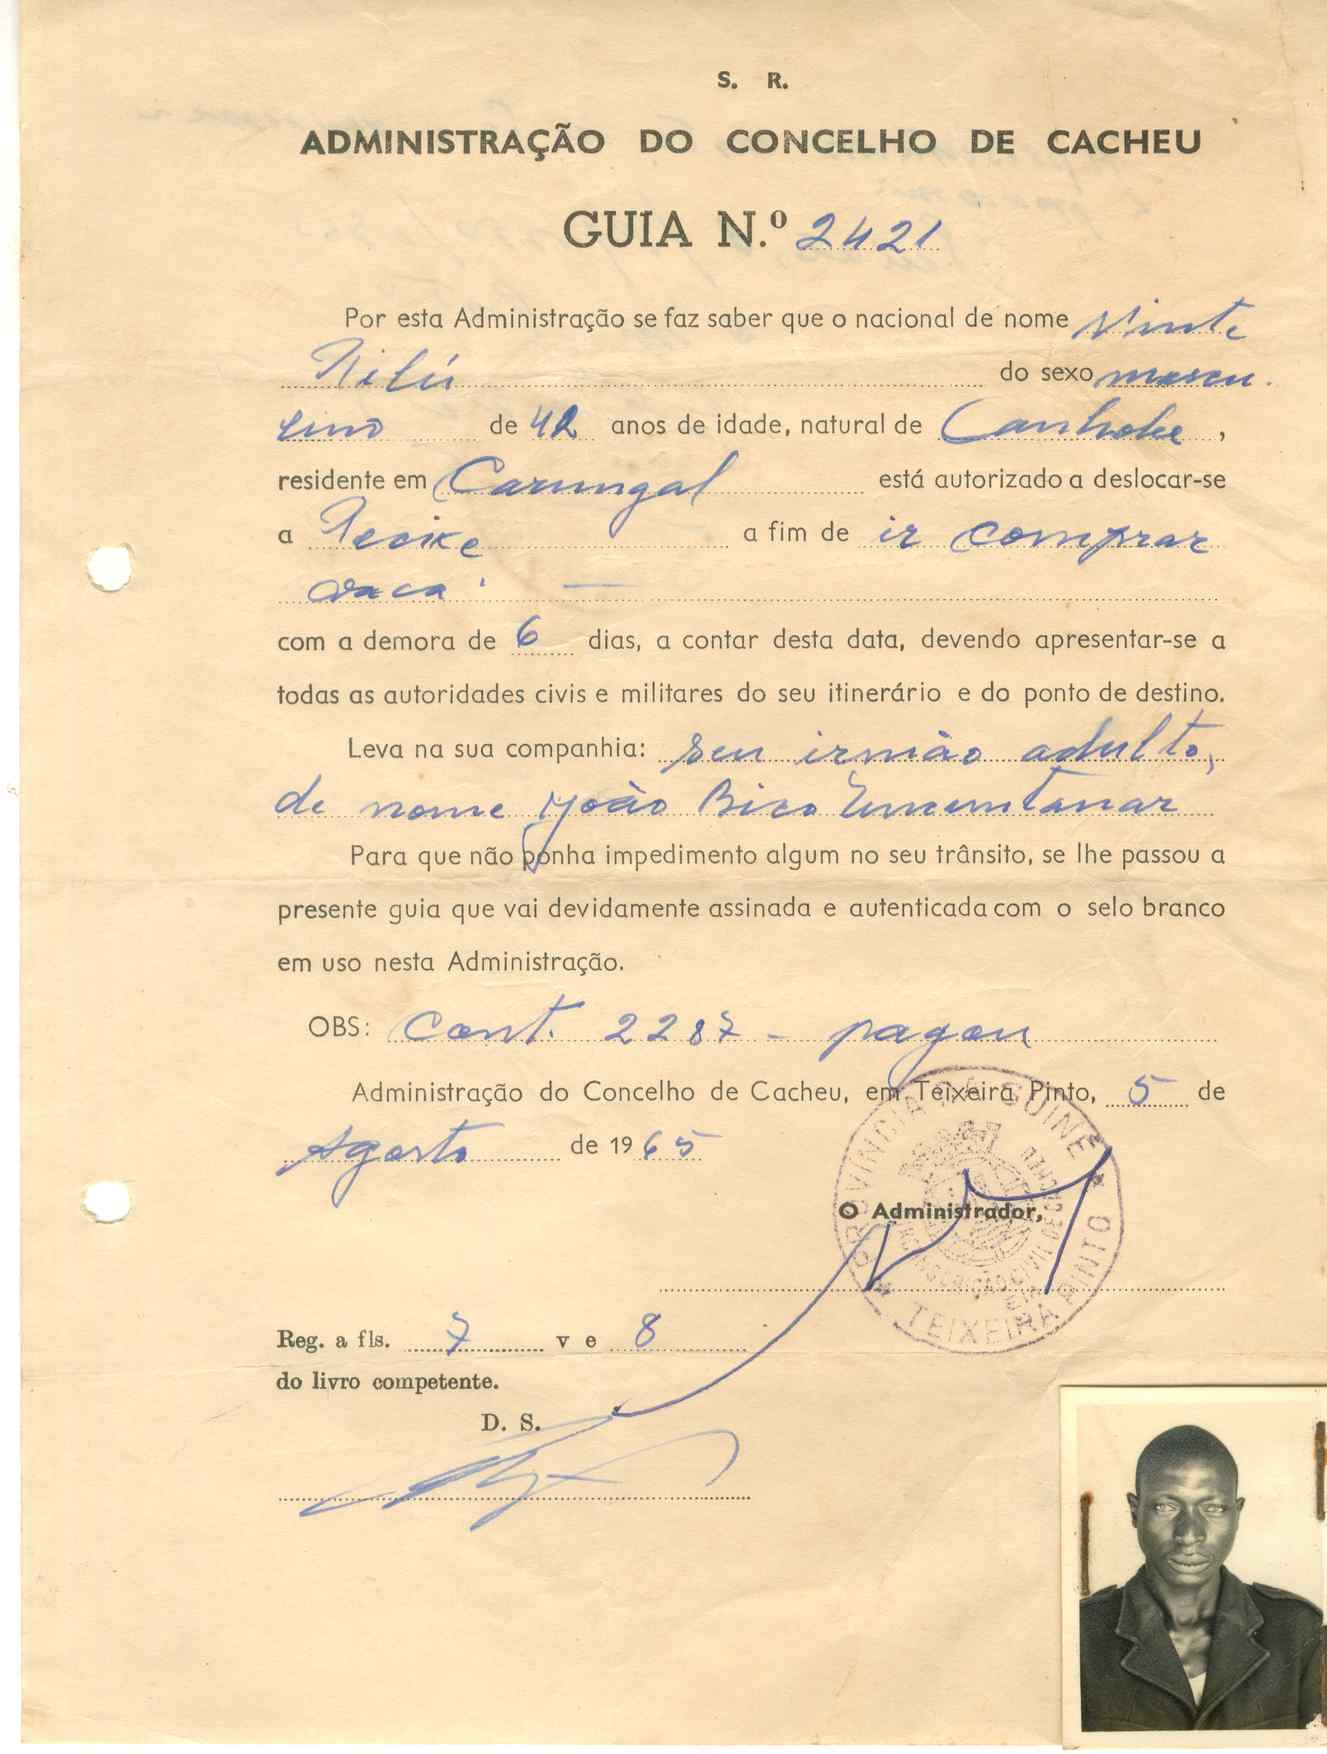 S. R.
ADMINISTRAÇÃO DO CONCELHO DE CACHEU
GUIA N.º 2421
Por esta Administração se faz saber que o nacional de nome Vinte
do sexo mascu
lino de 42 anos de idade, natural de Canhobe,
residente em Carungal está autorizado a deslocar-se
a Pecixe a fim de ir comprar
vaca. —
com a demora de 6 dias, a contar desta data, devendo apresentar-se a
todas as autoridades civis e militares do seu itinerário e do ponto de destino.
Leva na sua companhia: seu irmão adulto,
de nome João Bico
Para que não ponha impedimento algum no seu trânsito, se lhe passou a
presente guia que vai devidamente assinada e autenticada com o selo branco
em uso nesta Administração.
OBS: Cont. 2287 - pagou
Administração do Concelho de Cacheu, em Teixeira Pinto, 5 de
Agosto de 1965
PROVÍNCIA DA GUINÉ
CIRCUNSCRIÇÃO CIVIL DE CACHEU
TEIXEIRA PINTO
O Administrador,
Reg. a fls. 7 v e 8
do livro competente.
D. S.